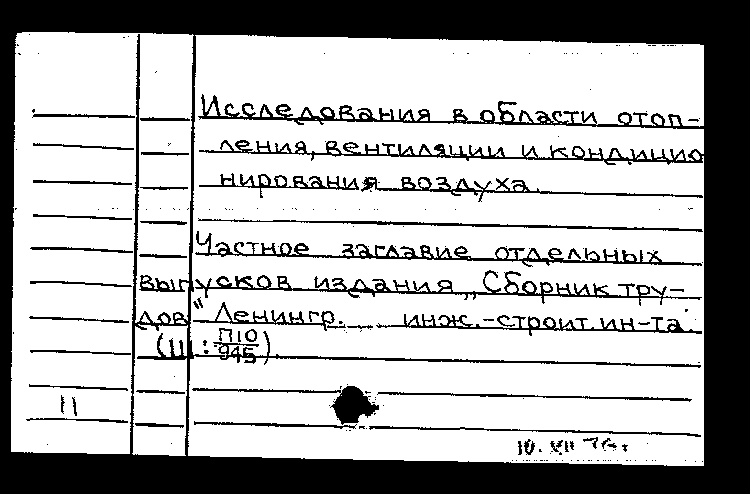 Исследования в области отоп-
ления, вентиляции и кондицио
нирования воздуха.
Частное заглавие отдельных
выпусков издания „Сборник тру-
дов" Ленингр. инж.-строит. ин-та.
(III: П10/945)
11
10. VII 76г.